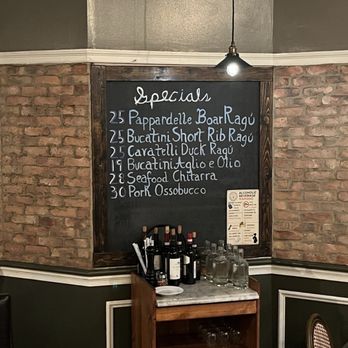 Specials
25 Pappardelle Boar Ragú
25 Bucatini Short Rib Ragú
25 Cavatelli Duck Ragú
19 Bucatini Aglio e Olio
28 Seafood Chitarra
30 Pork Ossobucco
ALCOHOLIC
BEVERAGE
WARNING